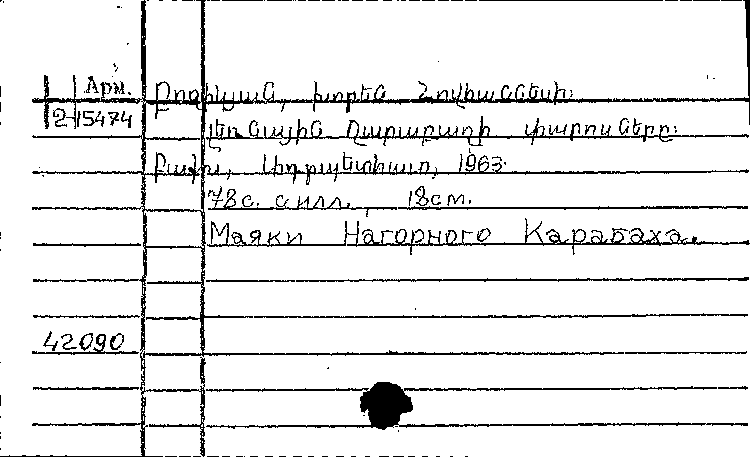 Арм.
2-15474
Խորեն Հովհաննեսի
Լեռնային Ղարաբաղի փարոսները։
Բաքու, Ադրպետհրատ, 1963.
78 с. с илл., 18 см.
Маяки Нагорного Карабаха.
42090